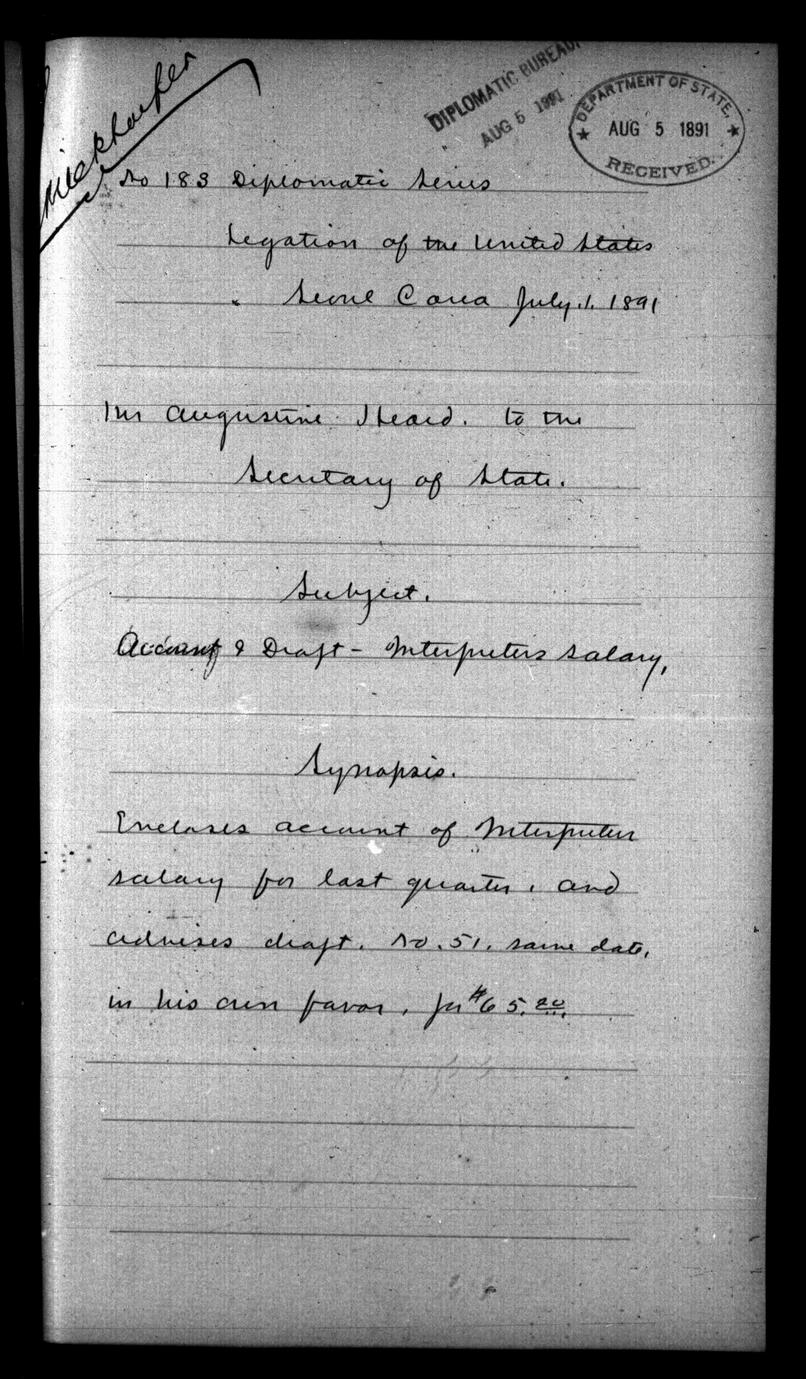 DIPLOMATIC BUREAU
AUG 5 1891
DEPARTMENT OF STATE,
AUG 5 1891
RECEIVED.
No 183 Diplomatic Series
Legation of the United States
Seoul Corea July 1. 1891
Mr Augustine Heard. to the
Secretary of State.
Subject.
Account & Draft - Interpreters salary,
Synopsis.
Encloses account of Interpreters
salary for last quarter, and
advises draft. No. 51. same date,
in his own favor, for $65.